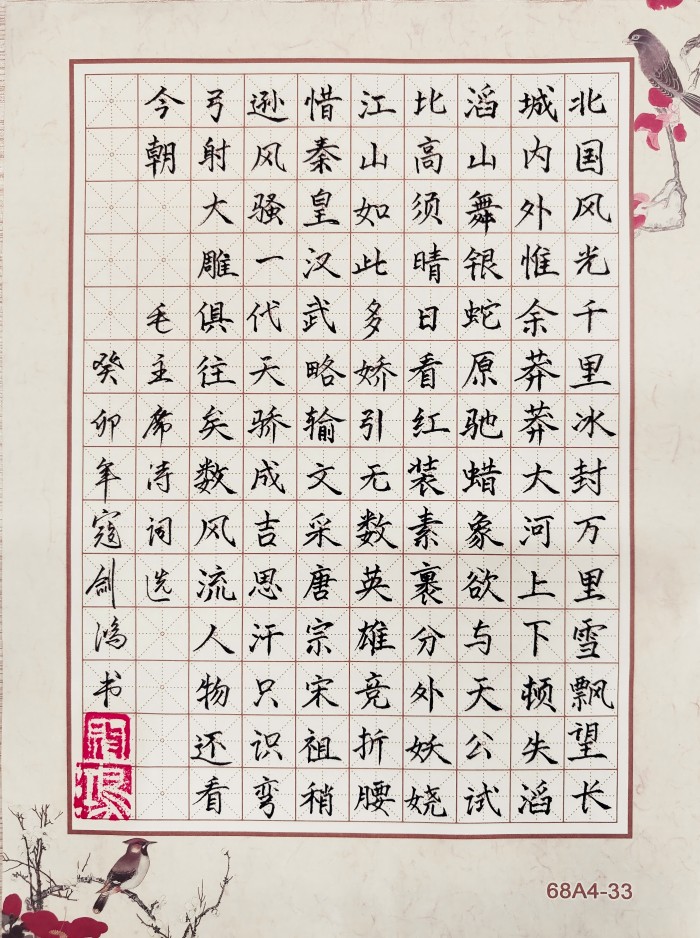 北国风光千里冰封万里雪飘望长
城内外惟余莽莽大河上下顿失滔
滔山舞银蛇原驰蜡象欲与天公试
比高须晴日看红装素裹分外妖娆
江山如此多娇引无数英雄竞折腰
惜秦皇汉武略输文采唐宗宋祖稍
逊风骚一代天骄成吉思汗只识弯
弓射大雕俱往矣数风流人物还看
今朝
毛主席诗词选
癸卯年寇剑鸿书
68A4-33